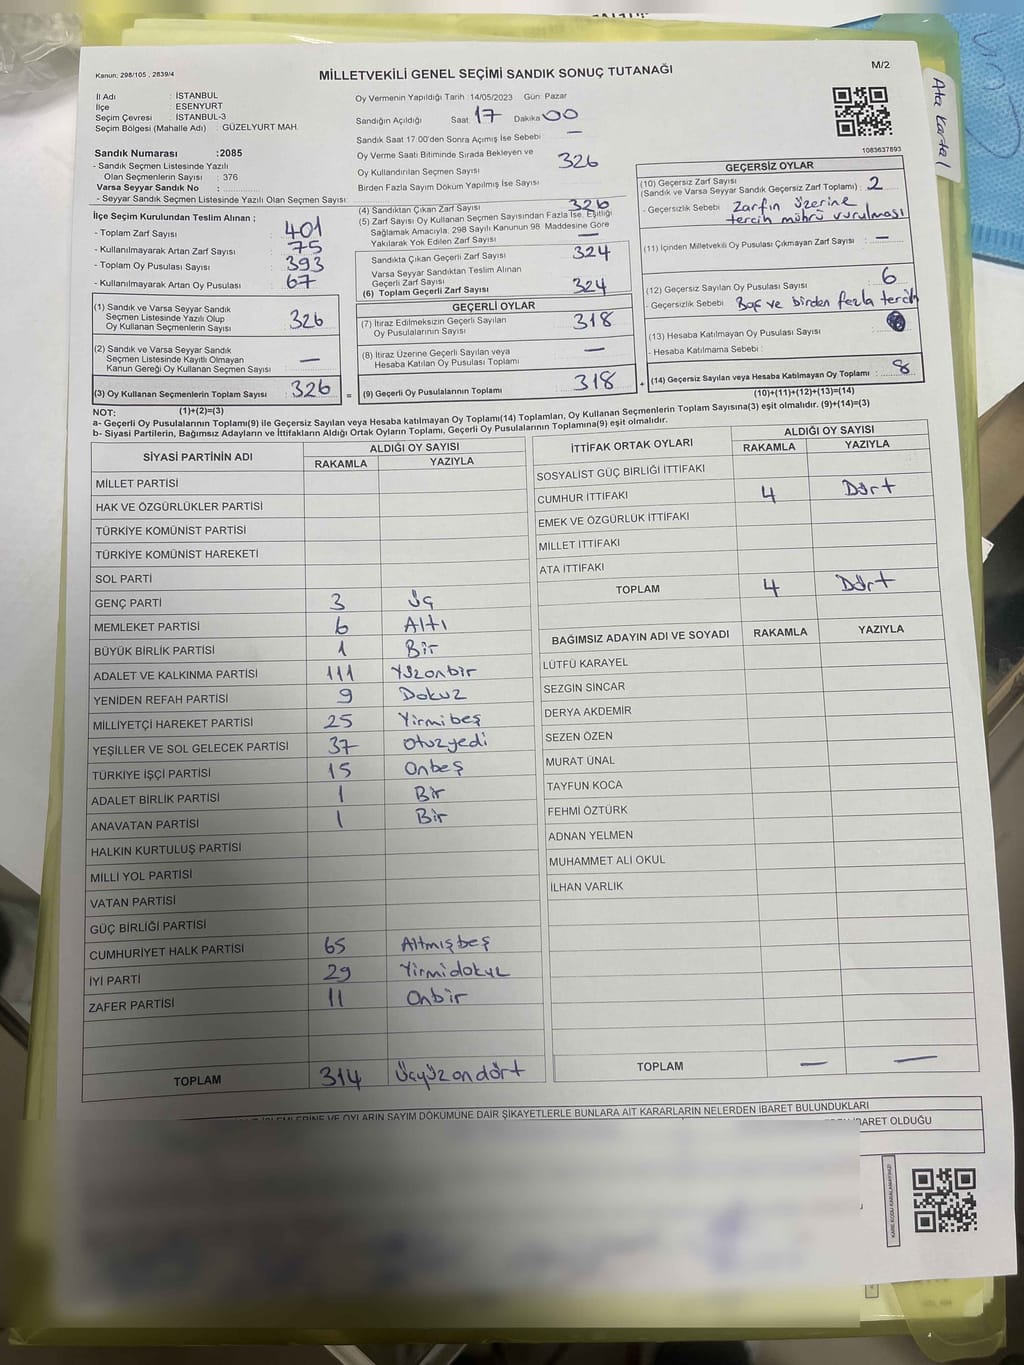 Kanun: 298/105 , 2839/4
MİLLETVEKİLİ GENEL SEÇİMİ SANDIK SONUÇ TUTANAĞI
M/2
Ata Kartal
İl Adı : İSTANBUL
İlçe : ESENYURT
Seçim Çevresi : İSTANBUL-3
Seçim Bölgesi (Mahalle Adı) : GÜZELYURT MAH.
Sandık Numarası :2085
- Sandık Seçmen Listesinde Yazılı
Olan Seçmenlerin Sayısı : 376
Varsa Seyyar Sandık No :
- Seyyar Sandık Seçmen Listesinde Yazılı Olan Seçmen Sayısı:
Oy Vermenin Yapıldığı Tarih :14/05/2023 Gün: Pazar
Sandığın Açıldığı Saat 17 Dakika 00
Sandık Saat 17:00'den Sonra Açılmış İse Sebebi —
Oy Verme Saati Bitiminde Sırada Bekleyen ve
Oy Kullandırılan Seçmen Sayısı 326
Birden Fazla Sayım Döküm Yapılmış İse Sayısı
1083637893
İlçe Seçim Kurulundan Teslim Alınan ;
- Toplam Zarf Sayısı : 401
- Kullanılmayarak Artan Zarf Sayısı : 75
- Toplam Oy Pusulası Sayısı : 393
- Kullanılmayarak Artan Oy Pusulası : 67
(1) Sandık ve Varsa Seyyar Sandık
Seçmen Listesinde Yazılı Olup
Oy Kullanan Seçmenlerin Sayısı : 326
(2) Sandık ve Varsa Seyyar Sandık
Seçmen Listesinde Kayıtlı Olmayan
Kanun Gereği Oy Kullanan Seçmen Sayısı : —
(3) Oy Kullanan Seçmenlerin Toplam Sayısı : 326
(1)+(2)=(3)
(4) Sandıktan Çıkan Zarf Sayısı 326
(5) Zarf Sayısı Oy Kullanan Seçmen Sayısından Fazla İse, Eşitliği
Sağlamak Amacıyla, 298 Sayılı Kanunun 98. Maddesine Göre
Yakılarak Yok Edilen Zarf Sayısı —
Sandıkta Çıkan Geçerli Zarf Sayısı 324
Varsa Seyyar Sandıktan Teslim Alınan
Geçerli Zarf Sayısı
(6) Toplam Geçerli Zarf Sayısı 324
GEÇERLİ OYLAR
(7) İtiraz Edilmeksizin Geçerli Sayılan
Oy Pusulalarının Sayısı 318
(8) İtiraz Üzerine Geçerli Sayılan veya
Hesaba Katılan Oy Pusulası Toplamı —
= (9) Geçerli Oy Pusulalarının Toplamı 318 +
GEÇERSİZ OYLAR
(10) Geçersiz Zarf Sayısı
(Sandık ve Varsa Seyyar Sandık Geçersiz Zarf Toplamı) : 2
- Geçersizlik Sebebi Zarfın üzerine
tercih mührü vurulması
(11) İçinden Milletvekili Oy Pusulası Çıkmayan Zarf Sayısı : —
(12) Geçersiz Sayılan Oy Pusulası Sayısı : 6
- Geçersizlik Sebebi : Boş ve birden fazla tercih
(13) Hesaba Katılmayan Oy Pusulası Sayısı :
- Hesaba Katılmama Sebebi :
(14) Geçersiz Sayılan veya Hesaba Katılmayan Oy Toplamı : 8
(10)+(11)+(12)+(13)=(14)
NOT:
a- Geçerli Oy Pusulalarının Toplamı(9) ile Geçersiz Sayılan veya Hesaba katılmayan Oy Toplamı(14) Toplamları, Oy Kullanan Seçmenlerin Toplam Sayısına(3) eşit olmalıdır. (9)+(14)=(3)
b- Siyasi Partilerin, Bağımsız Adayların ve İttifakların Aldığı Ortak Oyların Toplamı, Geçerli Oy Pusulalarının Toplamına(9) eşit olmalıdır.
SİYASİ PARTİNİN ADI ALDIĞI OY SAYISI
RAKAMLA YAZIYLA
MİLLET PARTİSİ
HAK VE ÖZGÜRLÜKLER PARTİSİ
TÜRKİYE KOMÜNİST PARTİSİ
TÜRKİYE KOMÜNİST HAREKETİ
SOL PARTİ
GENÇ PARTİ 3 Üç
MEMLEKET PARTİSİ 6 Altı
BÜYÜK BİRLİK PARTİSİ 1 Bir
ADALET VE KALKINMA PARTİSİ 111 Yüzonbir
YENİDEN REFAH PARTİSİ 9 Dokuz
MİLLİYETÇİ HAREKET PARTİSİ 25 Yirmibeş
YEŞİLLER VE SOL GELECEK PARTİSİ 37 otuzyedi
TÜRKİYE İŞÇİ PARTİSİ 15 Onbeş
ADALET BİRLİK PARTİSİ 1 Bir
ANAVATAN PARTİSİ 1 Bir
HALKIN KURTULUŞ PARTİSİ
MİLLİ YOL PARTİSİ
VATAN PARTİSİ
GÜÇ BİRLİĞİ PARTİSİ
CUMHURİYET HALK PARTİSİ 65 Altmışbeş
İYİ PARTİ 29 Yirmidokuz
ZAFER PARTİSİ 11 Onbir
TOPLAM 314 Üçyüzondört
İTTİFAK ORTAK OYLARI ALDIĞI OY SAYISI
RAKAMLA YAZIYLA
SOSYALİST GÜÇ BİRLİĞİ İTTİFAKI
CUMHUR İTTİFAKI 4 Dört
EMEK VE ÖZGÜRLÜK İTTİFAKI
MİLLET İTTİFAKI
ATA İTTİFAKI
TOPLAM 4 Dört
BAĞIMSIZ ADAYIN ADI VE SOYADI RAKAMLA YAZIYLA
LÜTFÜ KARAYEL
SEZGİN SİNCAR
DERYA AKDEMİR
SEZEN ÖZEN
MURAT ÜNAL
TAYFUN KOCA
FEHMİ ÖZTÜRK
ADNAN YELMEN
MUHAMMET ALİ OKUL
İLHAN VARLIK
TOPLAM — —
İŞLEMLERİNE VE OYLARIN SAYIM DÖKÜMÜNE DAİR ŞİKAYETLERLE BUNLARA AİT KARARLARIN NELERDEN İBARET BULUNDUKLARI
İBARET OLDUĞU
KARE KODU KARALAMAYINIZ!